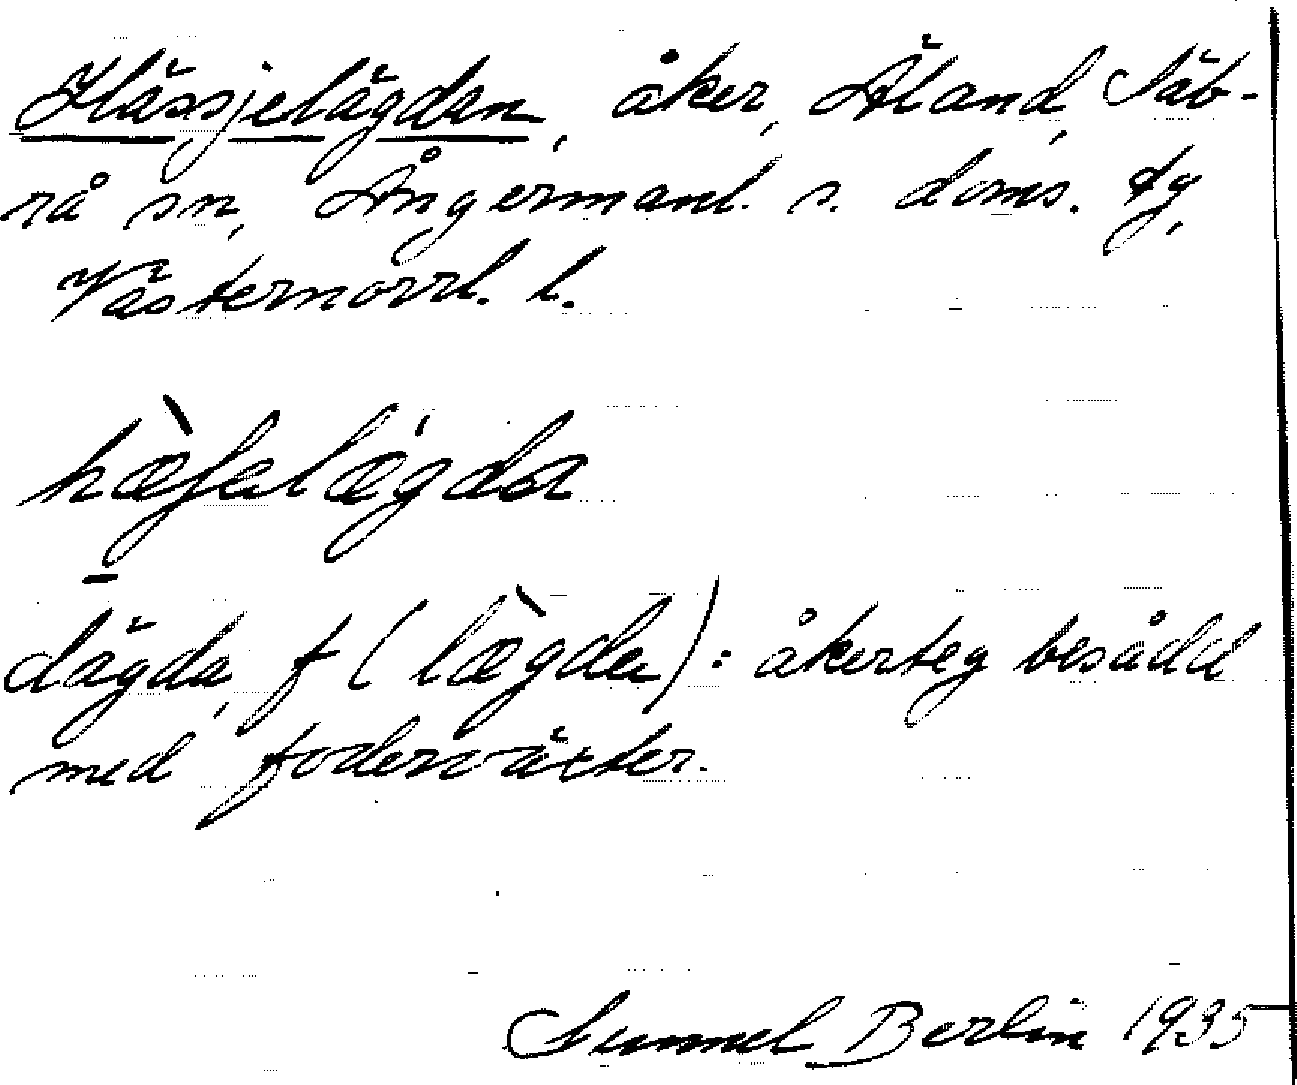 Hässjelägden, åker, Äland, Säb-
rå sn, Ångermanl. s. doms. tg,
Västernorrl. l.
hæ̀ʃelǽgda
lägda, f (læ̀gda): åkerteg besådd
med foderväxter.
Sunnel Berlin 1935